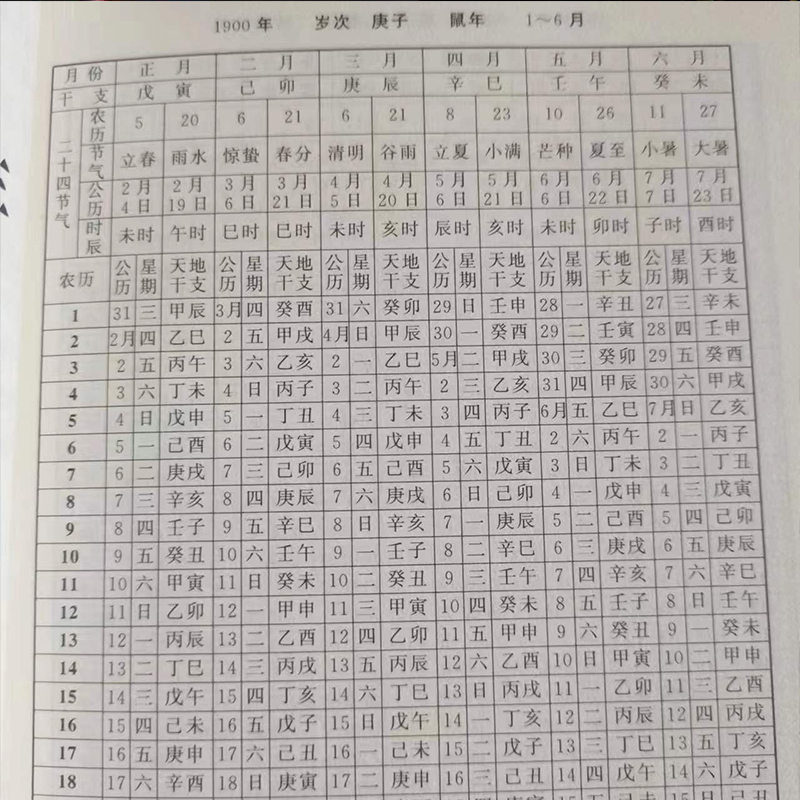 1900年 岁次 庚子 鼠年 1～6月
月份 正月 二月 三月 四月 五月 六月
干支 戊寅 己卯 庚辰 辛巳 壬午 癸未
二十四节气
农历 5 20 6 21 6 21 8 23 10 26 11 27
节气 立春 雨水 惊蛰 春分 清明 谷雨 立夏 小满 芒种 夏至 小暑 大暑
公历 2月4日 2月19日 3月6日 3月21日 4月5日 4月20日 5月6日 5月21日 6月6日 6月22日 7月7日 7月23日
时辰 未时 午时 巳时 巳时 未时 亥时 辰时 亥时 未时 卯时 子时 酉时
农历 公历 星期 天地干支 公历 星期 天地干支 公历 星期 天地干支 公历 星期 天地干支 公历 星期 天地干支 公历 星期 天地干支
1 31 三 甲辰 3月 四 癸酉 31 六 癸卯 29 日 壬申 28 一 辛丑 27 三 辛未
2 2月 四 乙巳 2 五 甲戌 4月 日 甲辰 30 一 癸酉 29 二 壬寅 28 四 壬申
3 2 五 丙午 3 六 乙亥 2 一 乙巳 5月 二 甲戌 30 三 癸卯 29 五 癸酉
4 3 六 丁未 4 日 丙子 3 二 丙午 2 三 乙亥 31 四 甲辰 30 六 甲戌
5 4 日 戊申 5 一 丁丑 4 三 丁未 3 四 丙子 6月 五 乙巳 7月 日 乙亥
6 5 一 己酉 6 二 戊寅 5 四 戊申 4 五 丁丑 2 六 丙午 2 一 丙子
7 6 二 庚戌 7 三 己卯 6 五 己酉 5 六 戊寅 3 日 丁未 3 二 丁丑
8 7 三 辛亥 8 四 庚辰 7 六 庚戌 6 日 己卯 4 一 戊申 4 三 戊寅
9 8 四 壬子 9 五 辛巳 8 日 辛亥 7 一 庚辰 5 二 己酉 5 四 己卯
10 9 五 癸丑 10 六 壬午 9 一 壬子 8 二 辛巳 6 三 庚戌 6 五 庚辰
11 10 六 甲寅 11 日 癸未 10 二 癸丑 9 三 壬午 7 四 辛亥 7 六 辛巳
12 11 日 乙卯 12 一 甲申 11 三 甲寅 10 四 癸未 8 五 壬子 8 日 壬午
13 12 一 丙辰 13 二 乙酉 12 四 乙卯 11 五 甲申 9 六 癸丑 9 一 癸未
14 13 二 丁巳 14 三 丙戌 13 五 丙辰 12 六 乙酉 10 日 甲寅 10 二 甲申
15 14 三 戊午 15 四 丁亥 14 六 丁巳 13 日 丙戌 11 一 乙卯 11 三 乙酉
16 15 四 己未 16 五 戊子 15 日 戊午 14 一 丁亥 12 二 丙辰 12 四 丙戌
17 16 五 庚申 17 六 己丑 16 一 己未 15 二 戊子 13 三 丁巳 13 五 丁亥
18 17 六 辛酉 18 日 庚寅 17 二 庚申 16 三 己丑 14 四 戊午 14 六 戊子